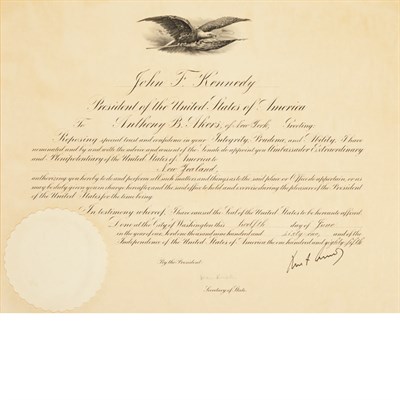 John F. Kennedy
President of the United States of America
To Anthony B. Akers, of New York, Greeting:
Reposing special trust and confidence in your Integrity, Prudence, and Ability, I have
nominated and by and with the advice and consent of the Senate do appoint you Ambassador Extraordinary
and Plenipotentiary of the United States of America to
New Zealand,
authorizing you hereby to do and perform all such matters and things as to the said place or Office do appertain, or as
may be duly given you in charge hereafter and the said office to hold and exercise during the pleasure of the President
of the United States for the time being.
In testimony whereof, I have caused the Seal of the United States to be hereunto affixed.
Done at the City of Washington this twelfth day of June
in the year of our Lord one thousand nine hundred and sixty-one, and of the
Independence of the United States of America the one hundred and eighty-fifth.
By the President:
Secretary of State.